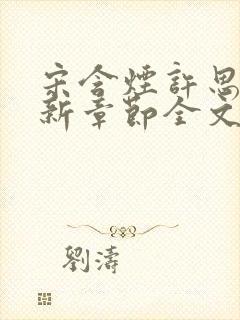 宋含煙許思
新章節全文
劉濤